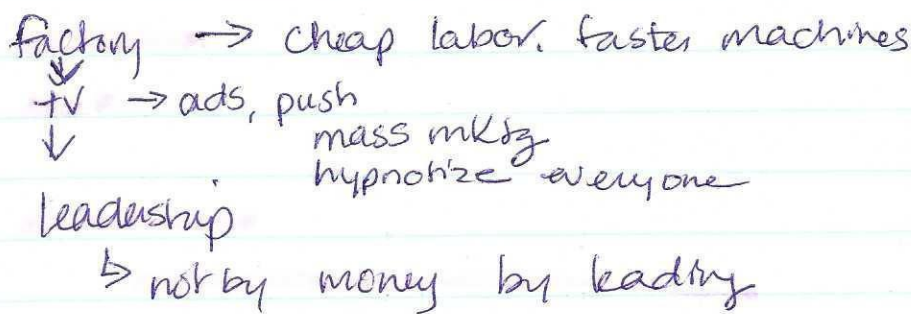 factory → cheap labor. faster machines
TV → ads, push
mass mktg
hypnotize everyone
leadership
↳ not by money by leading